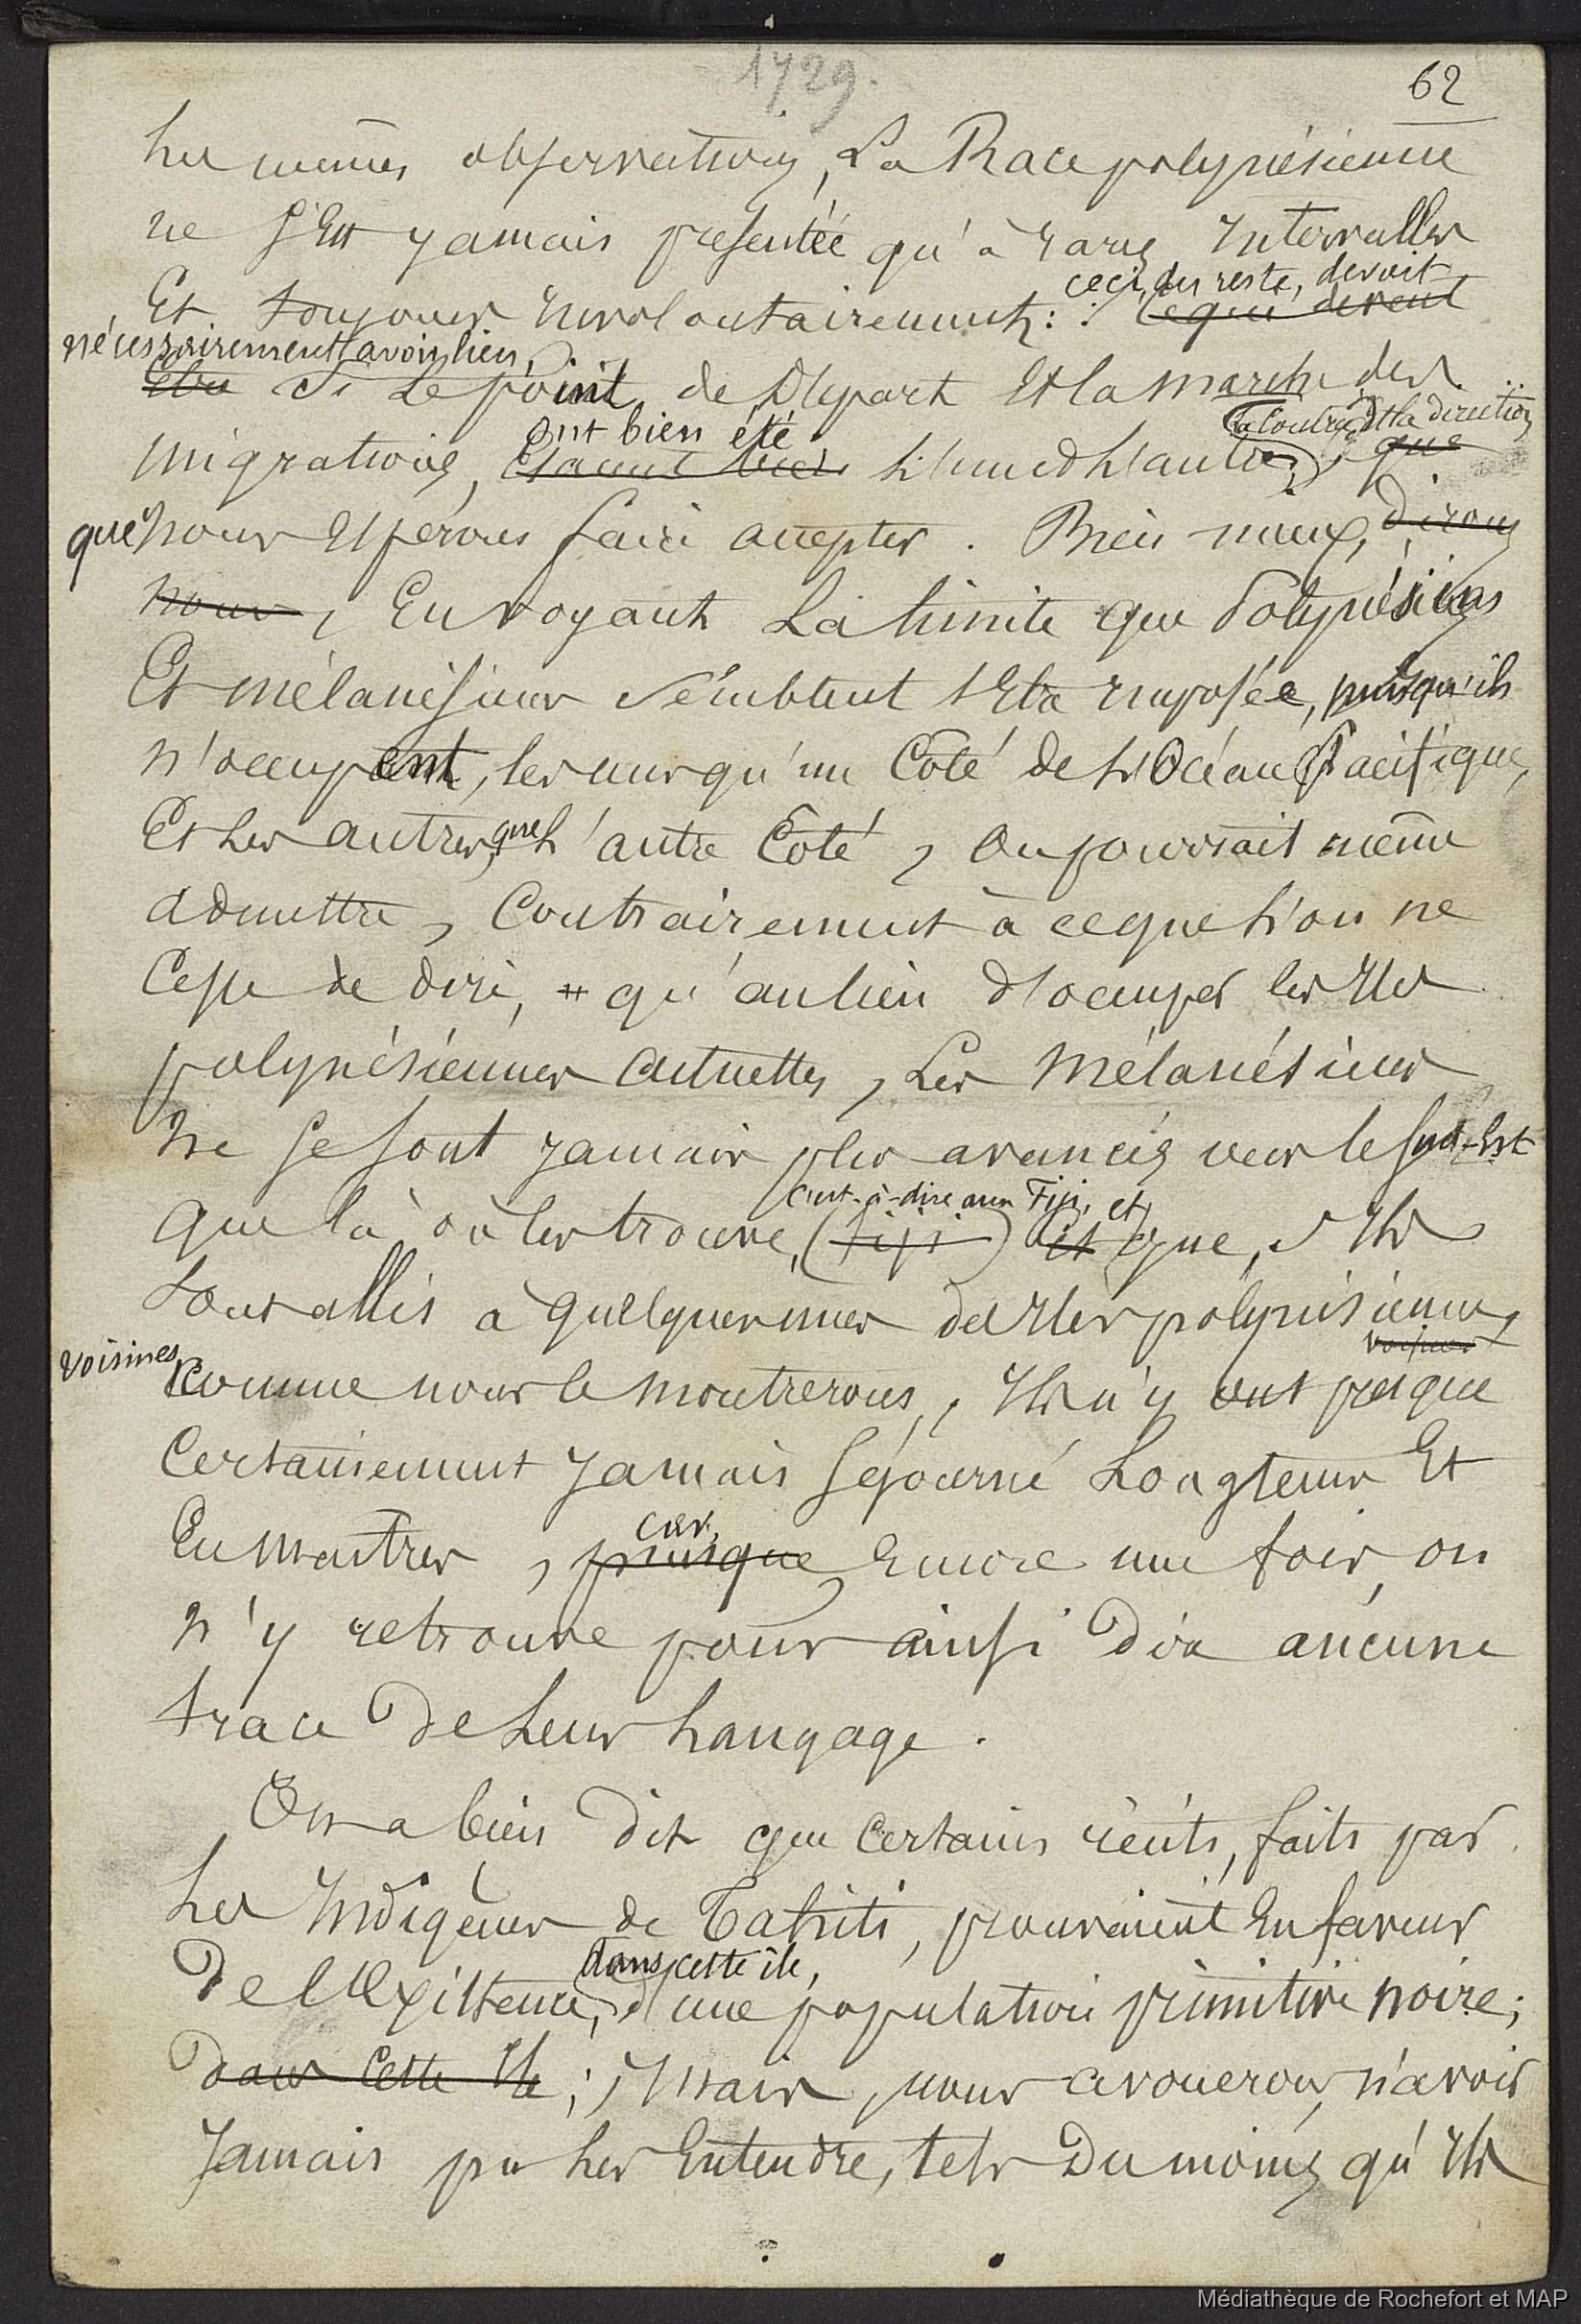 1729.
62
les mêmes observations, La Race polynésienne
ne s'est jamais présentée qu'à rares Intervalles
ceci, du reste, devait
Et toujours Involontairement : ce qui devait
nécessairement avoir lieu,
Etre si le point de Départ Et la marche des
ont bien été
migrations, étaient bien l'un et l'autre, que
la contrée et la direction
que nous Espérons faire accepter. Bien mieux, dirons
nous, En voyant La limite que Polynésiens
Et mélanésiens semblent s'Etre imposée, puisqu'ils
n'occupent, les uns qu'un Côté de l'Océan Pacifique,
Et les autres que l'autre Côté, On pourrait même
admettre, Contrairement à ce que l'on ne
Cesse de dire, qu'au lieu d'occuper les Iles
polynésiennes actuelles, Les Mélanésiens
ne se sont jamais plus avancés vers le Sud-Est
c'est-à-dire aux Fiji, et
que là où les trouve, (Fiji) Et que, s'Ils
sont allés à quelques unes des Iles polynésiennes
voisines
voisines comme nous le montrerons, Ils n'y ont presque
Certainement jamais séjourné Longtems Et
car,
En maîtres, puisque Encore une fois, on
n'y retrouve pour ainsi dire aucune
trace de Leur Langage.
On a bien dit que Certains récits, faits par
Les Indigènes de Tahiti, prouvaient En faveur
dans cette île,
De l'Existence, d'une population primitive noire;
dans Cette Ile; Mais, nous avouerons n'avoir
Jamais pu les Entendre, tels Du moins qu'Ils
Médiathèque de Rochefort et MAP